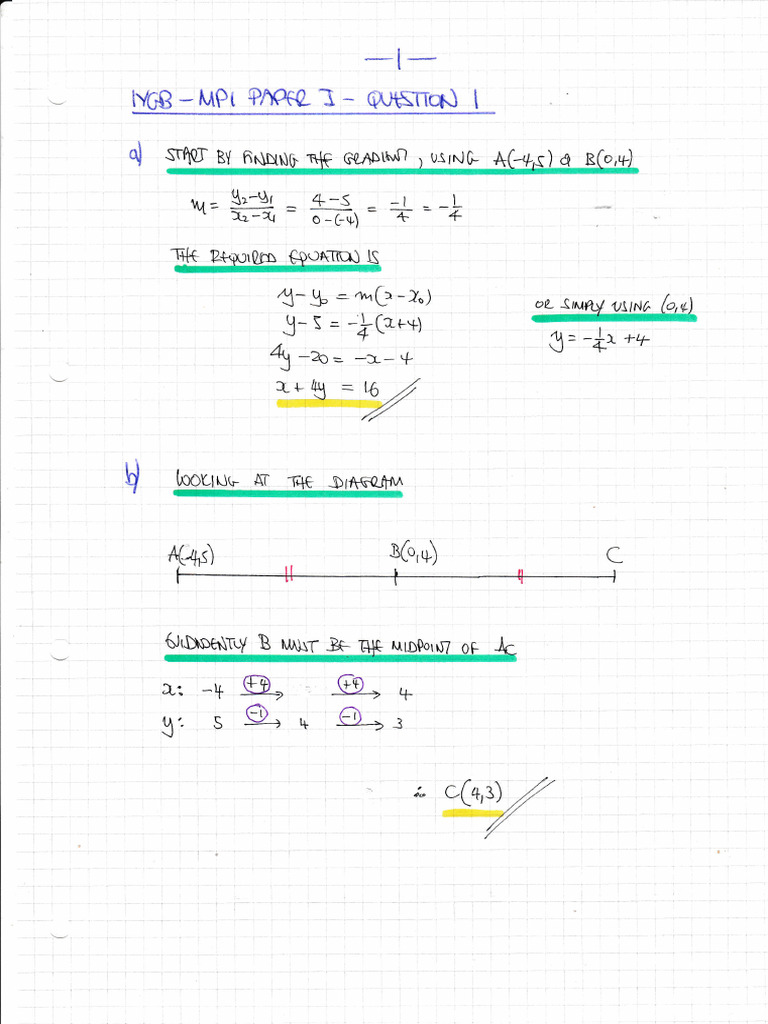 —1—
IYGB – MP1 PAPER J – QUESTION 1
a) START BY FINDING THE GRADIENT, USING A(-4,5) & B(0,4)
m = (y₂-y₁)/(x₂-x₁) = (4-5)/(0-(-4)) = -1/4 = -1/4
THE REQUIRED EQUATION IS
y - y₀ = m(x - x₀)
y - 5 = -1/4(x+4)
4y - 20 = -x - 4
x + 4y = 16
OR SIMPLY USING (0,4)
y = -1/4x + 4
b) LOOKING AT THE DIAGRAM
A(-4,5) B(0,4) C
EVIDENTLY B MUST BE THE MIDPOINT OF AC
x: -4 +4 → +4 → 4
y: 5 -1 → 4 -1 → 3
∴ C(4,3)